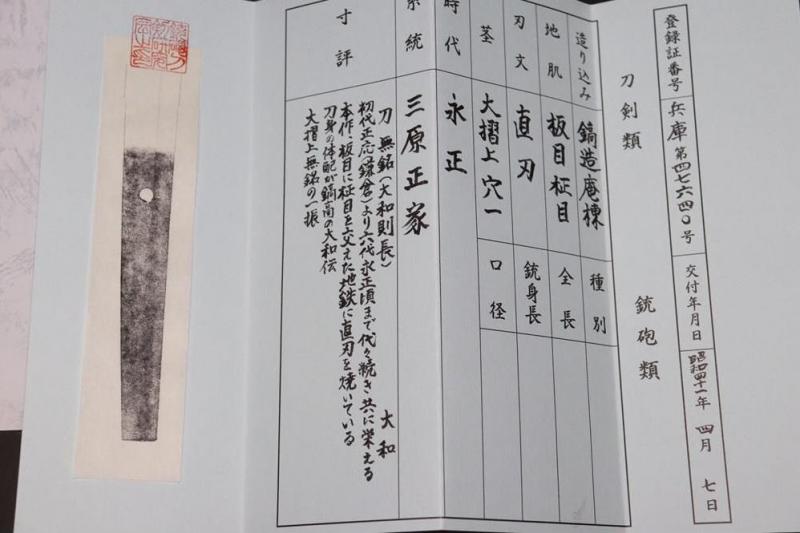 登録証番号 兵庫 第四七六四〇号 交付年月日 昭和四十一年 四月 七日
刀剣類 銃砲類
造り込み 鎬造庵棟 種別
地肌 板目柾目 全長
刃文 直刃 銃身長
茎 大摺上穴一 口径
時代 永正
系統 三原正家
寸評
刀 無銘(大和則長) 大和
初代正応(鎌倉)より六代永正頃まで代々続き共に栄える
本作、板目に柾目を交えた地鉄に直刃を焼いている
刀身の体配が鎬高の大和伝
大摺上無銘の一振